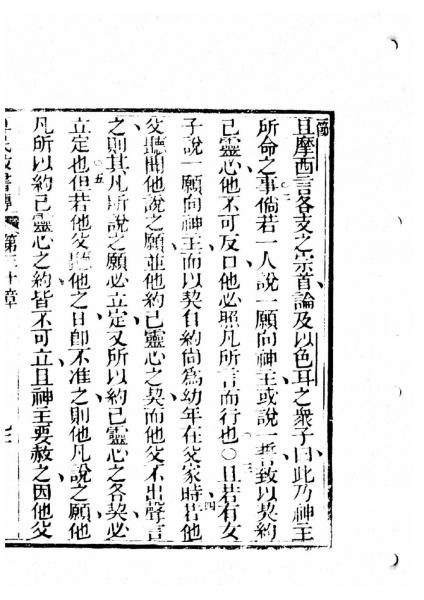 節
且摩西言各支之宗首論及以色耳之衆子曰此乃神主
所命之事倘若一人說一願向神主或說一誓致以契約
己靈心他不可反口他必照凡所言而行也○且若有女
子說一願向神主而以契自約尚爲幼年在父家時若他
父聽聞他說之願並他約己靈心之契而他父不出聲言
之則其凡所說之願必立定又所以約己靈心之各契必
立定也但若他父聽他之日卽不准之則他凡說之願他
凡所以約己靈心之約皆不可立且神主要赦之因他父
第三十章